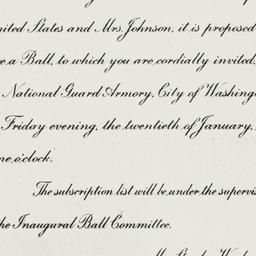 United States and Mrs. Johnson, it is proposed
a Ball, to which you are cordially invited,
National Guard Armory, City of Washing
Friday evening, the twentieth of January,
o'clock.
The subscription list will be under the supervis
the Inaugural Ball Committee.